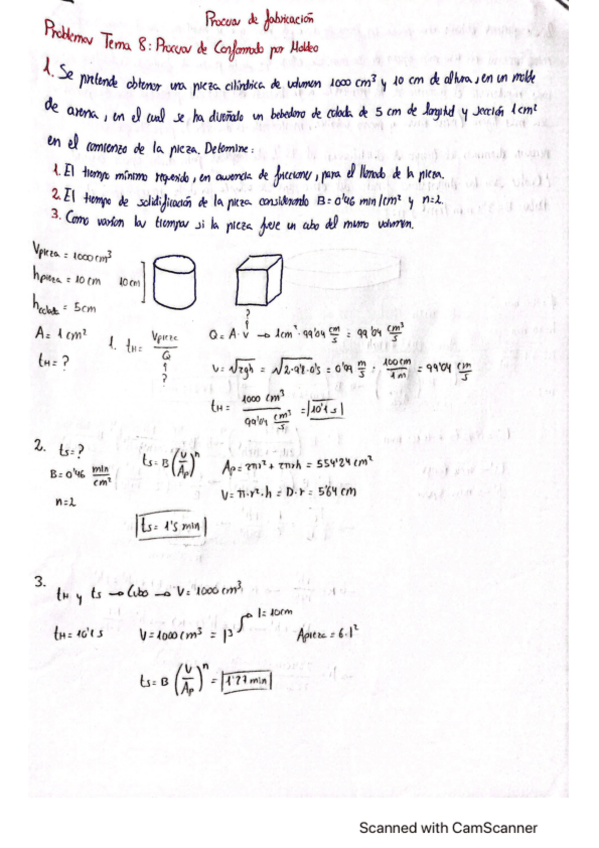 Procesos de fabricación
Problemas Tema 8: Procesos de Conformado por Moldeo
1. Se pretende obtener una pieza cilíndrica de volumen 1000 cm³ y 10 cm de altura, en un molde
de arena, en el cual se ha diseñado un bebedero de colada de 5 cm de longitud y sección 1cm²
en el comienzo de la pieza. Determine:
1. El tiempo mínimo requerido, en ausencia de fricciones, para el llenado de la pieza.
2. El tiempo de solidificación de la pieza considerando B=0'46 min/cm² y n=2.
3. Como varían los tiempos si la pieza fuese un cubo del mismo volumen.
Vpieza = 1000cm³
hpieza = 10 cm 10 cm
hcolada = 5cm
A = 1 cm²
tH = ?
?
1. tH = Vpieza / Q
?
Q = A · v → 1cm² · 99'04 cm/s = 99'04 cm³/s
v = √2gh = √2·9'8·0'5 = 0'99 m/s · 100cm/1m = 99'04 cm/s
tH = 1000 cm³ / 99'04 cm³/s = 10'1 s
2. ts = ?
B = 0'46 min/cm²
n=2
ts = B (V/Ap)ⁿ
Ap = 2πr² + 2πrh = 554'24 cm²
V = π·r²·h = D·r = 5'64 cm
ts = 1'5 min
3.
tH y ts → Cubo → V = 1000 cm³
tH = 10'1 s V = 1000 cm³ = l³ l = 10cm Apieza = 6·l²
ts = B (V/Ap)ⁿ = 1'27 min
Scanned with CamScanner